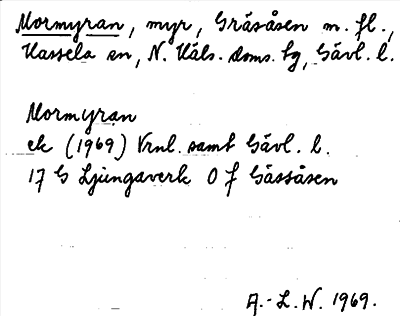 Mormyran, myr, Gräsåsen m. fl.,
Hassela sn, N. Häls. doms. tg, Gävl. l.
Mormyran
ek (1969) Vrnl. samt Gävl. l.
17 G Ljungaverk 0 f Gässåsen
A.-L. W. 1969.